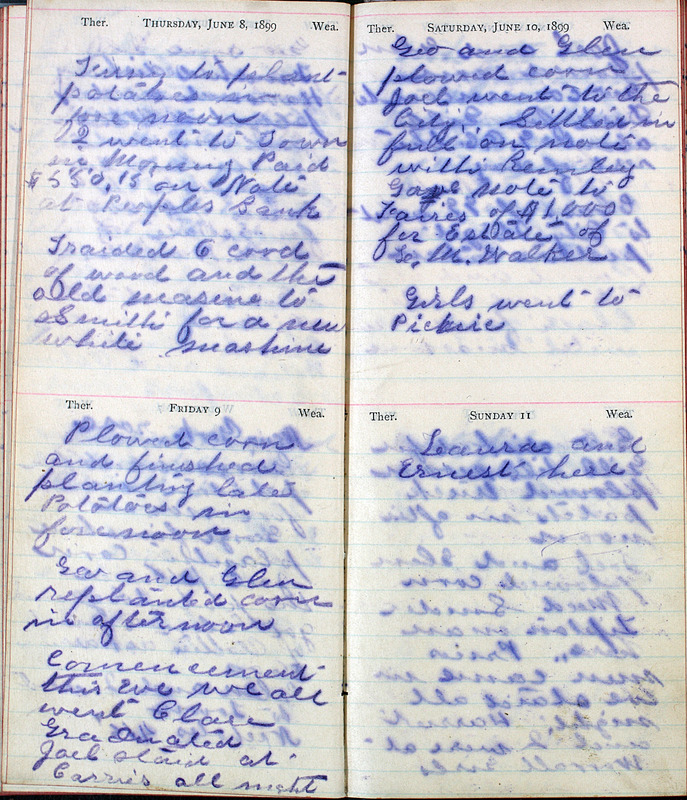 Ther. THURSDAY, JUNE 8, 1899 Wea.
to plant
potatoes in
fore noon
went to Town
in Morning Paid
$550.15 on Note
at Peoples Bank
Traided 6 cord
of wood and the
old masine to
Smith for a new
white mashine
Ther. FRIDAY 9 Wea.
Plowed corn
and finished
planting late
Potatoes in
forenoon
Geo and Glen
replanted corn
in afternoon
Comencement
this eve we all
went Clare
Graduated
Joel staid at
Carries all night
Ther. SATURDAY, JUNE 10, 1899 Wea.
Geo and Glen
plowed corn
Joel went to the
City. Settled in
full on note
with
Gave note to
Faires of $1,000
for Estate of
M. Walker
Girls went to
Picknic
Ther. SUNDAY 11 Wea.
Laura and
Ernest here